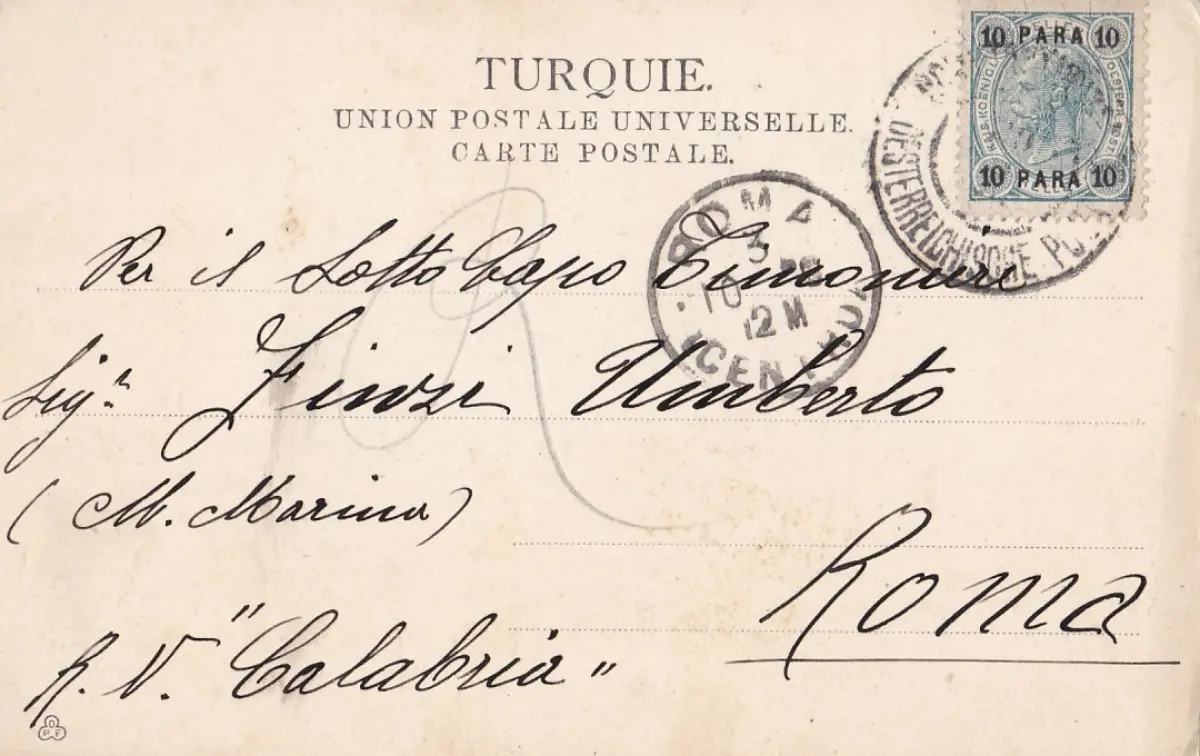 10 PARA 10
10 PARA 10
TURQUIE.
UNION POSTALE UNIVERSELLE.
CARTE POSTALE.
OESTERREICHISCHE PO
ROMA
3
10
12 M
CENTRO
Per il Sotto Capo Timoniere
Sigr. Finzi Umberto
(M. Marina)
Roma
R. N. "Calabria"